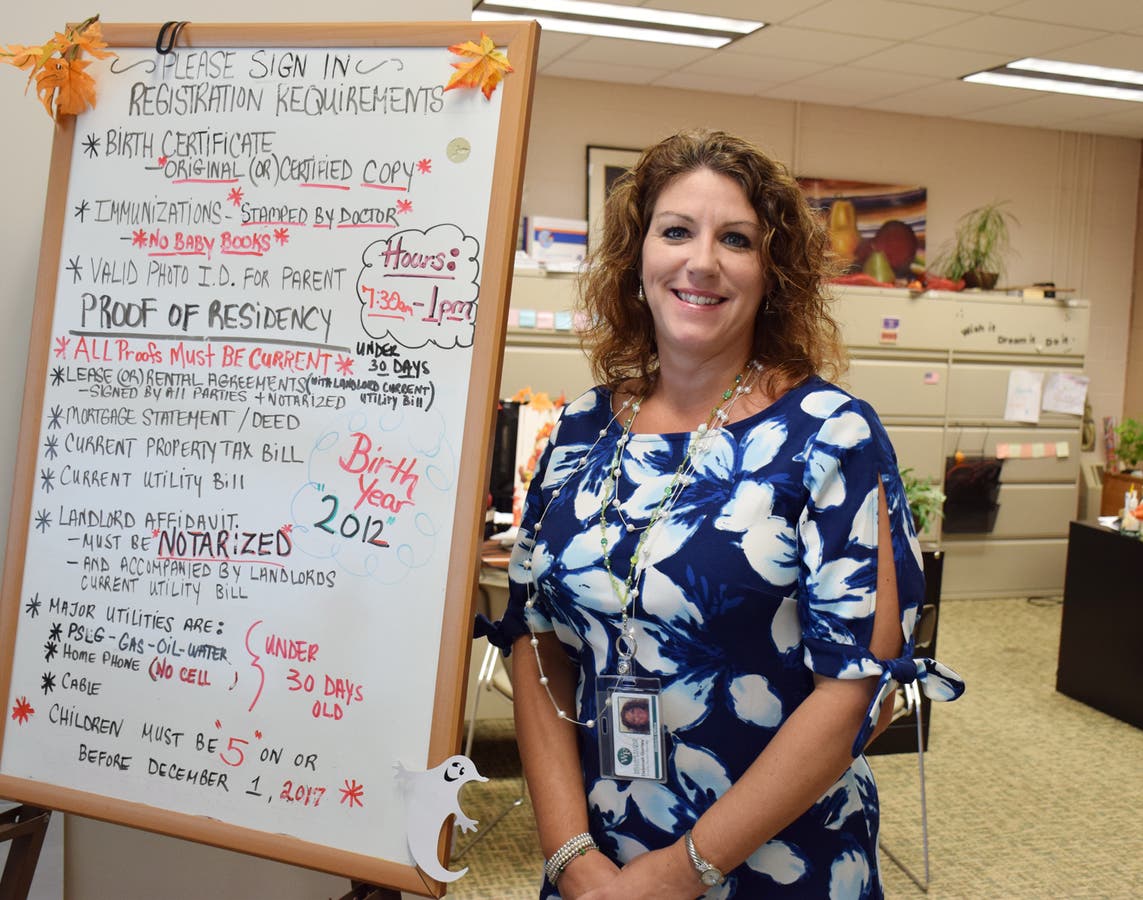 PLEASE SIGN IN
REGISTRATION REQUIREMENTS
* BIRTH CERTIFICATE
- *ORIGINAL (OR) CERTIFIED COPY *
* IMMUNIZATIONS - *STAMPED BY DOCTOR*
- *NO BABY BOOKS*
* VALID PHOTO I.D. FOR PARENT
Hours:
7:30am - 1pm
PROOF OF RESIDENCY
* ALL Proofs Must BE CURRENT *
UNDER
30 DAYS
* LEASE (OR) RENTAL AGREEMENTS (WITH LANDLORD CURRENT
UTILITY BILL)
- SIGNED BY All PARTIES + NOTARIZED
* MORTGAGE STATEMENT / DEED
* CURRENT PROPERTY TAX BILL
* CURRENT UTILITY BILL
Birth
Year
"2012"
* LANDLORD AFFIDAVIT
- MUST BE *NOTARIZED*
- AND ACCOMPANIED BY LANDLORDS
CURRENT UTILITY BILL
* MAJOR UTILITIES ARE:
* PSEG - GAS - OIL - WATER
* HOME PHONE (NO CELL)
* CABLE
UNDER
30 DAYS
OLD
* CHILDREN MUST BE "5" ON OR
BEFORE DECEMBER 1, 2017 *
Wish it
Dream it
Do it